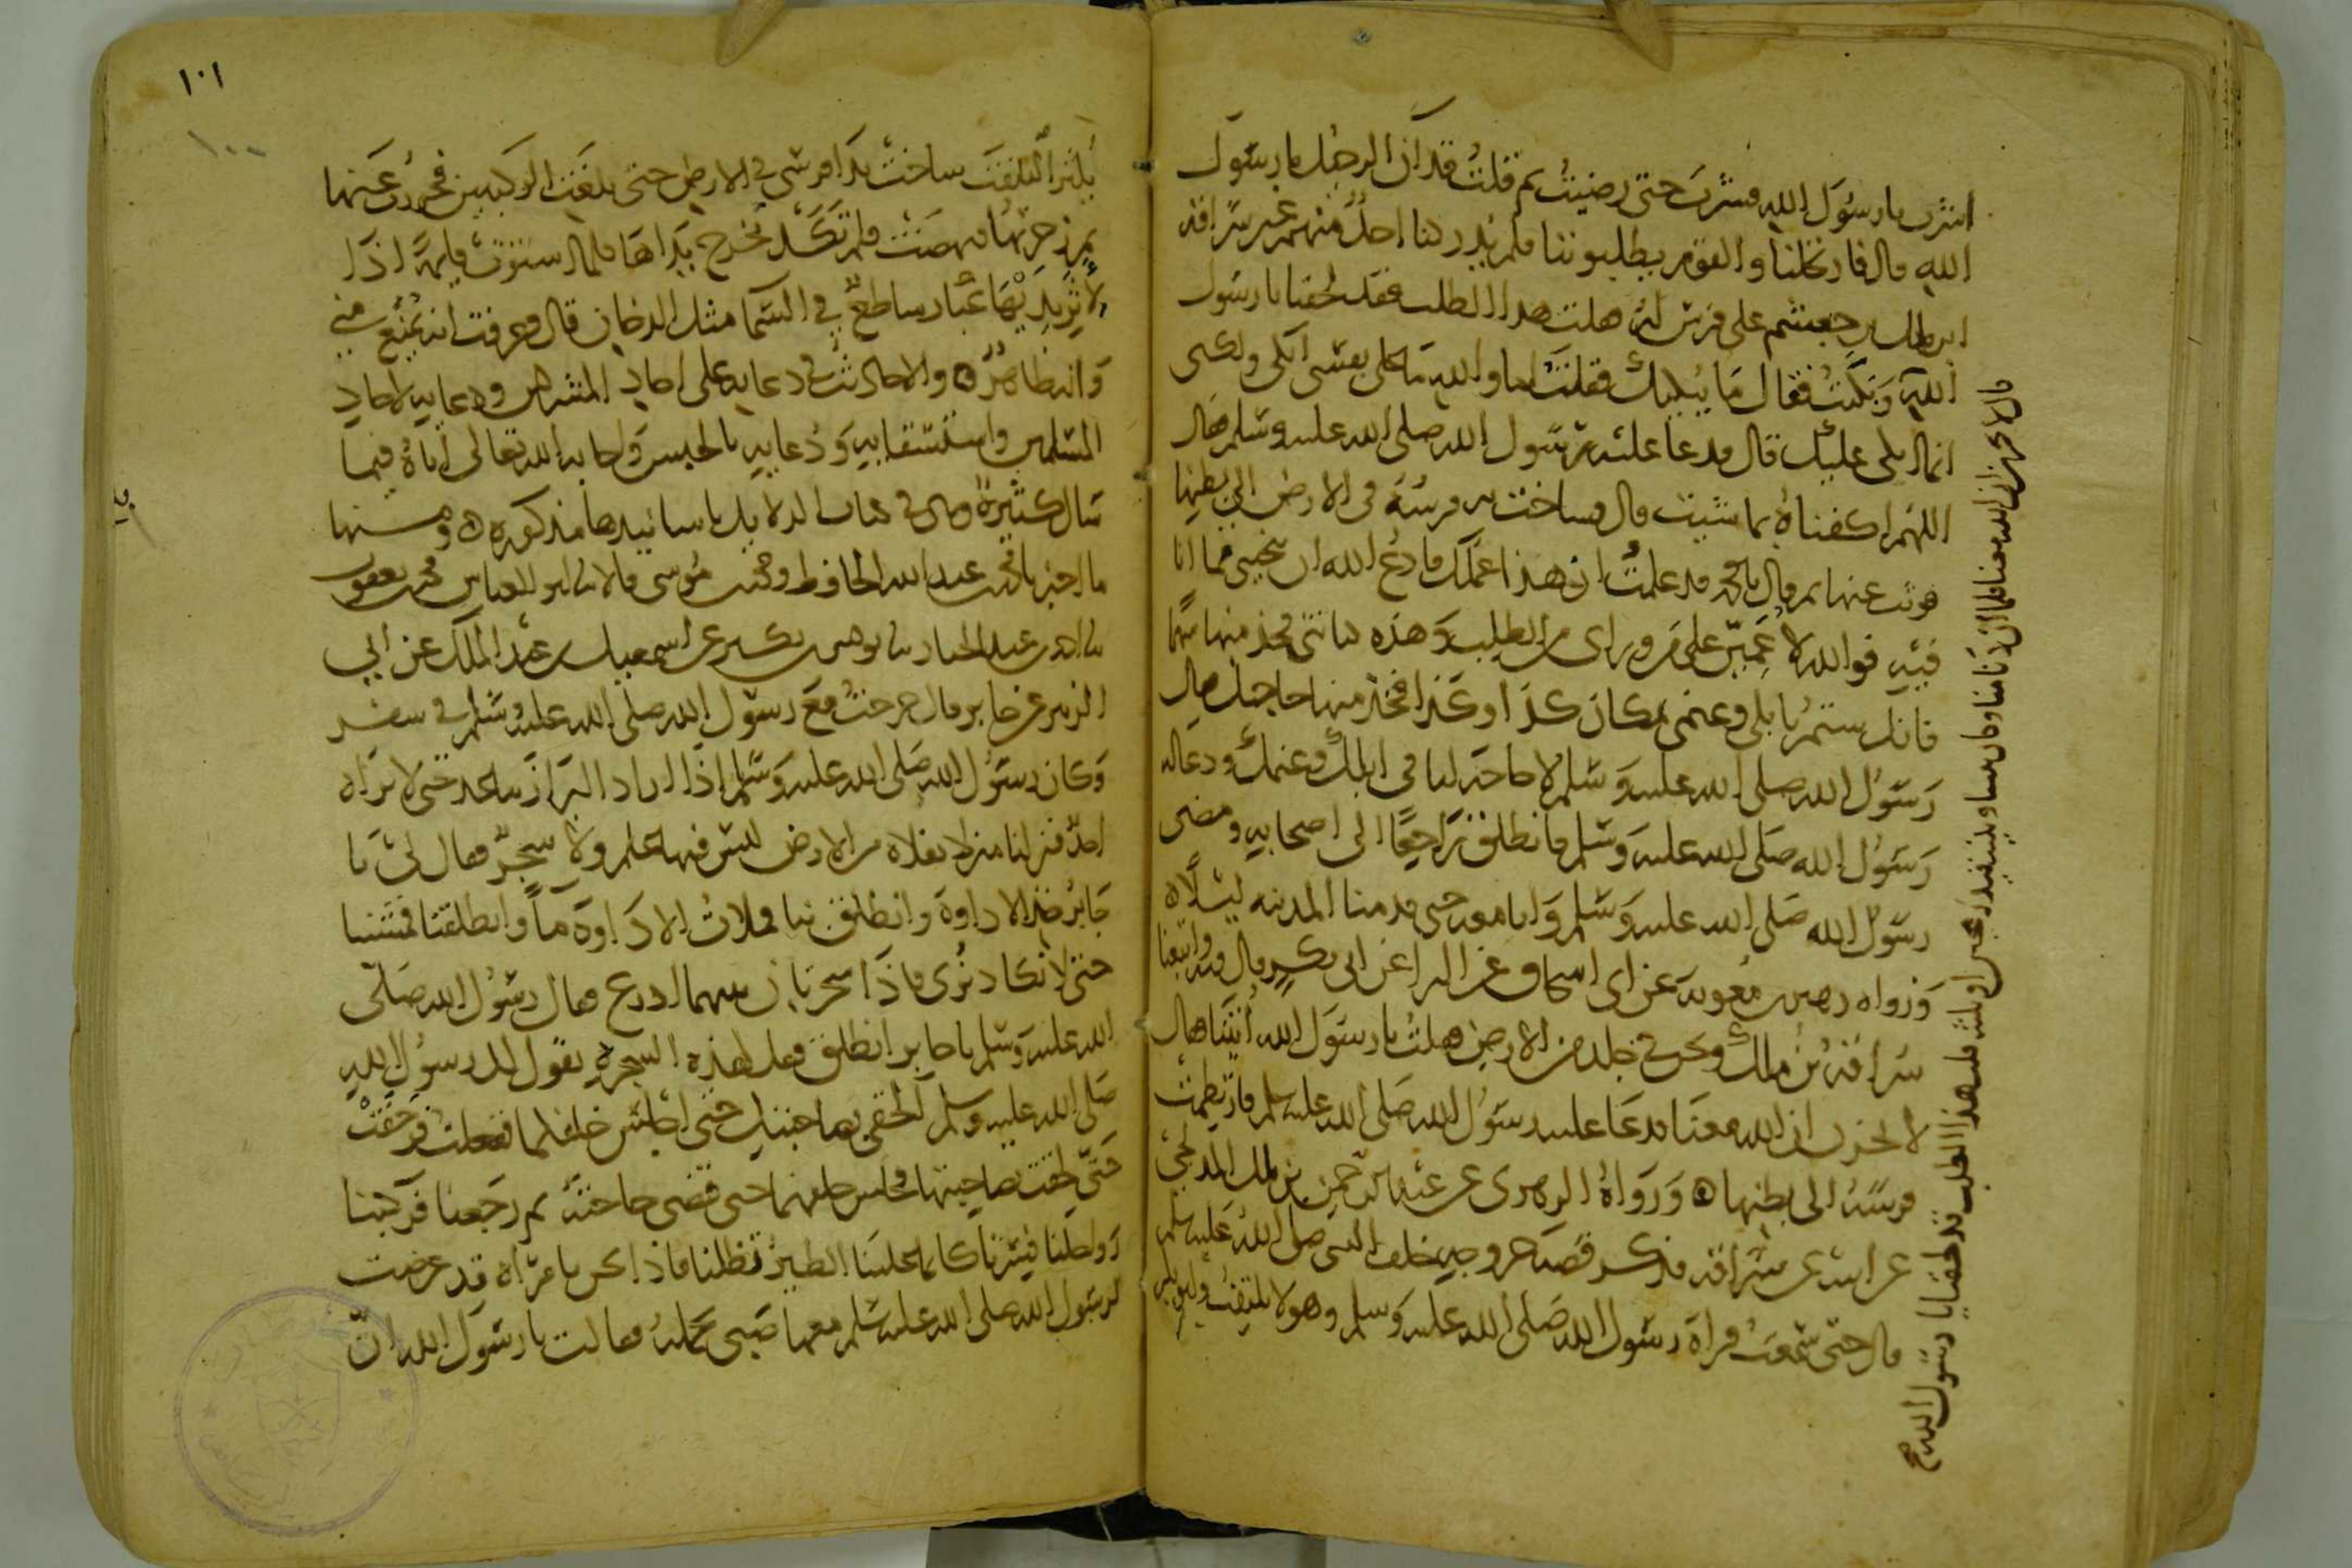 اشرب يا رسول الله فشرب حتى رضيت ثم قلت قد آن الرحيل يا رسول
الله قال فارتحلنا والقوم يطلبوننا فلم يدركنا احد منهم غير سراقة
ابن ملك بن جعشم على فرس له فقلت هذا الطلب فقد لحقنا يا رسول
الله وبكيت فقال ما يبكيك فقلت اما والله ما على نفسي ابكي ولكني
انما ابكي عليك قال فدعا عليه رسول الله صلى الله عليه وسلم فقال
اللهم اكفناه بما شيت قال فساخت به فرسه في الارض الى بطنها
فوثب عنها ثم قال يا محمد قد علمت ان هذا عملك فادع الله ان ينجيني مما انا
فيه فوالله لاعمين على من وراي من الطلب وهذه كنانتي فخذ منها سهما
فانك ستمر بابلي وغنمي بمكان كذا وكذا فخذ منها حاجتك فقال
رسول الله صلى الله عليه وسلم لا حاجة لنا في ابلك وغنمك ودعا له
رسول الله صلى الله عليه وسلم فانطلق راجعا الى اصحابه ومضى
رسول الله صلى الله عليه وسلم وانا معه حتى قدمنا المدينه ليلا
ورواه زهير بن معوية عن ابي اسحاق عن البراء عن ابي بكر قال فيه واتبعنا
سراقة بن ملك ونحن في جلد من الارض فقلت يا رسول الله أتينا فقال
لا تحزن ان الله معنا فدعا عليه رسول الله صلى الله عليه وسلم فارتطمت
فرسه الى بطنها ورواه الزهري عن عبد الرحمن بن ملك المدلجي
عن ابيه عن سراقة فذكر قصة خروجه خلف النبي صلى الله عليه وسلم
قال حتى سمعت قراة رسول الله صلى الله عليه وسلم وهو لا يلتفت وابو بكر
قال لا تحزن ان الله معنا فلما ان دنا منا وكان بيننا وبينه قيد رمحين او ثلثه قلت هذا الطلب قد لحقنا يا رسول الله
١٠١
١٠٠
يكثر التلفت ساخت يدا فرسي في الارض حتى بلغت الركبتين فخررت عنها
ثم زجرتها فنهضت فلم تكد تخرج يداها فلما استوت قايمة اذا
لاثر يديها غبار ساطع في السما مثل الدخان قال فعرفت انه يمنع مني
وانه ظاهر والاحاديث في دعايه على احاد المشركين ودعايه لاحاد
المسلمين واستسقايه ودعايه بالحبس واجابة الله تعالى اياه فيما
سال كثيرة وهي في كتاب الدلايل باسانيدها مذكورة ومنها
ما اخبرنا محمد بن عبد الله الحافظ ومحمد بن موسى قالا ثنا ابو العباس محمد بن يعقوب
ثنا احمد بن عبد الجبار ثنا يونس بن بكير عن اسمعيل بن عبد الملك عن ابي
الزبير عن جابر قال خرجت مع رسول الله صلى الله عليه وسلم في سفر
وكان رسول الله صلى الله عليه وسلم اذا اراد البراز تباعد حتى لا يراه
احد فنزلنا منزلا بفلاة من الارض ليس فيها علم ولا شجر فقال لي يا
جابر خذ الاداوة وانطلق بنا فملات الاداوة ما وانطلقنا فمشينا
حتى لا نكاد نرى فاذا شجرتان بينهما اذرع فقال رسول الله صلى
الله عليه وسلم يا جابر انطلق فقل لهذه الشجرة يقول لك رسول الله
صلى الله عليه وسلم الحقي بصاحبتك حتى اجلس خلفكما ففعلت فزحفت
حتى لحقت بصاحبتها فجلس خلفهما حتى قضى حاجته ثم رجعنا فركبنا
رواحلنا فسرنا كانما علينا الطير تظلنا فاذا نحن بامراة قد عرضت
لرسول الله صلى الله عليه وسلم معها صبي تحمله فقالت يا رسول الله ان